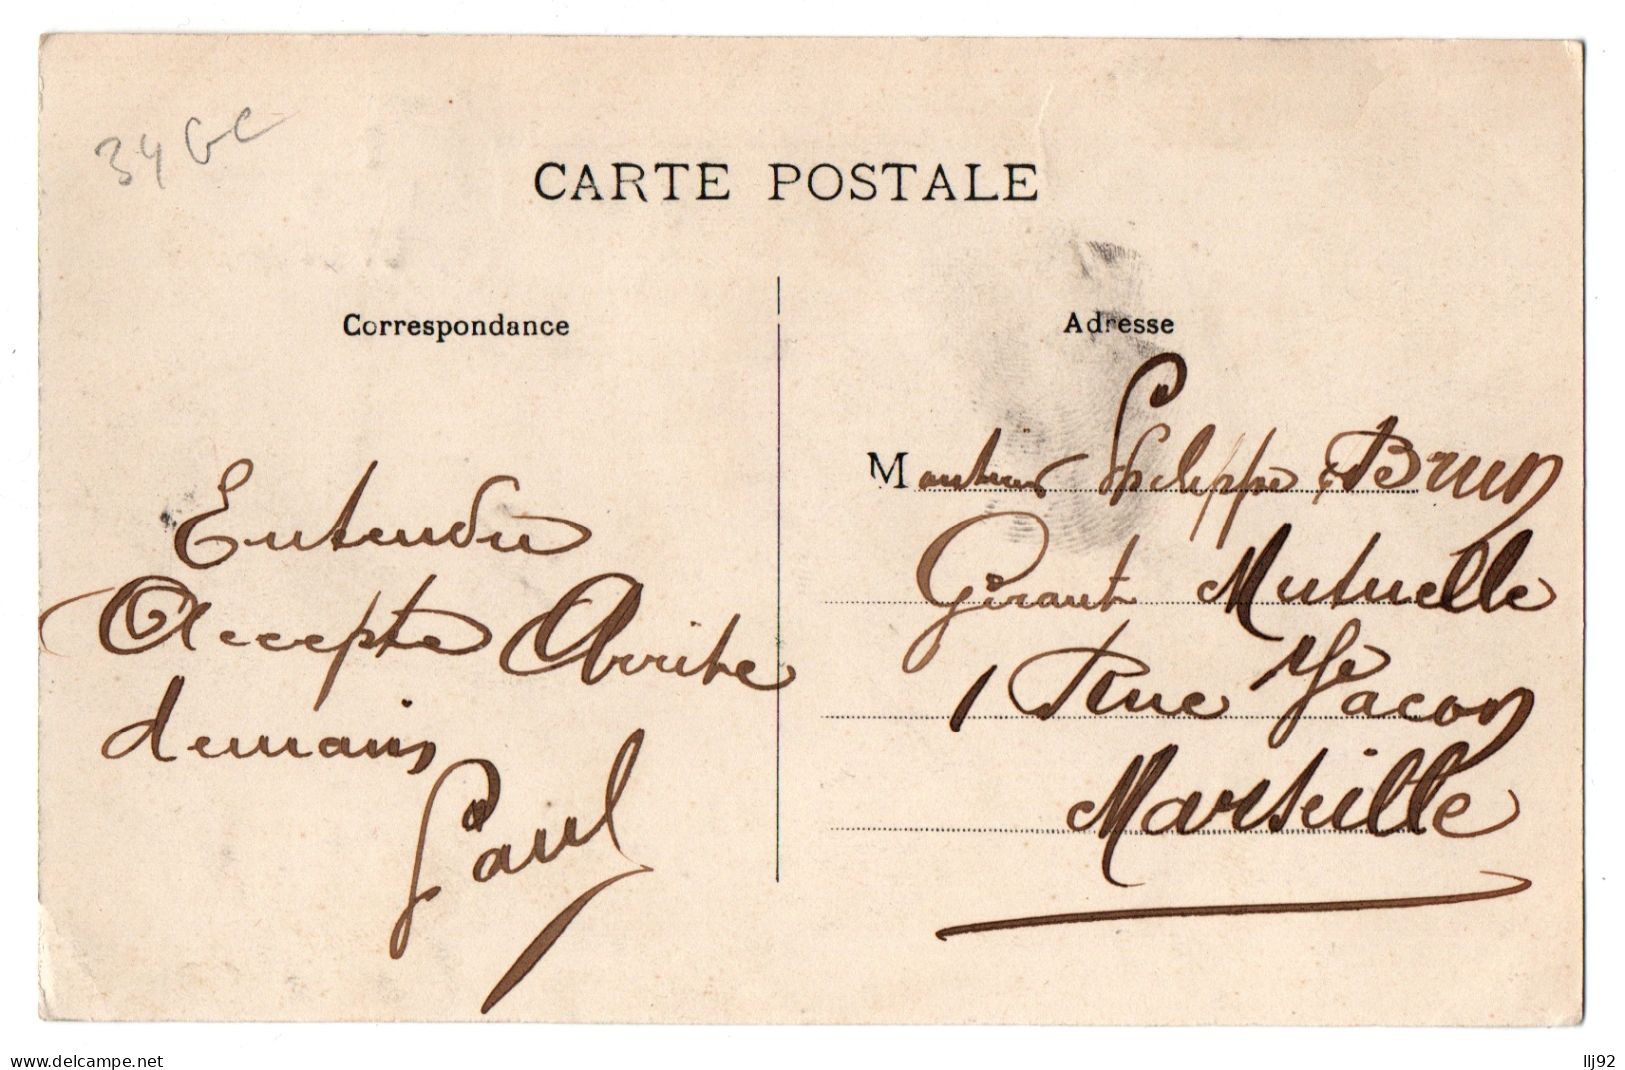 34 GC
CARTE POSTALE
Correspondance
Adresse
Entendu
Accepte Arrive
demain
Paul
Monsieur Philippe Brun
Gérant Mutuelle
1 Rue Jacon
Marseille
www.delcampe.net
llj92